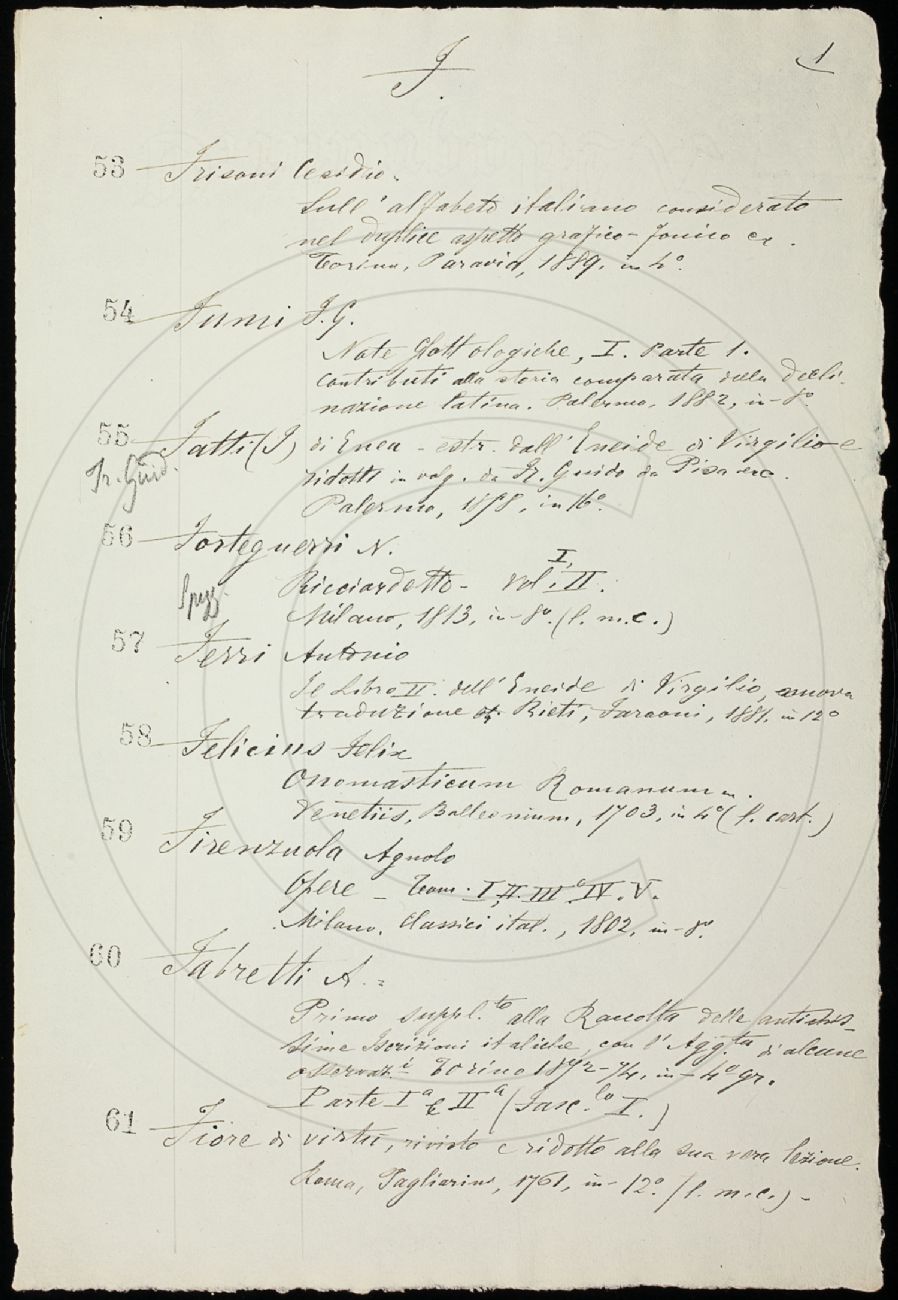 F.
1
53 Frisoni Cesidio.
Sull' alfabeto italiano considerato
nel duplice aspetto grafico-fonico ec.
Torino, Paravia, 1889. in 4º.
54 Fumi F.G.
Note Glottologiche, I. Parte 1.
Contributi alla storia comparata della decli-
nazione latina. Palermo, 1882, in-8º
55 Fatti (I) di Enea - estr. dall' Eneide di Virgilio e
Fr. Guid. ridotti in volg. da Fr. Guido da Pisa ec.
Palermo, in 16º.
56 Forteguerri N.
Ricciardetto - Vol. I, II.
Milano, 1813, in-8º. (l. m.c.)
57 Ferri Antonio
Il Libro II. dell' Eneide di Virgilio, nuova
traduzione Rieti, Faraoni, 1881. in 12º
58 Felicius Felix
Onomasticum Romanum.
Venetiis, Balleonium, 1703, in 4º (l. cart.)
59 Firenzuola Agnolo
Opere - Tom. I, II. III e IV. V.
Milano, Classici ital., 1802, in-8º.
60 Fabretti A.
Primo suppl.to alla Raccolta delle antichis-
sime Iscrizioni italiche con l' Agg.ta di alcune
osservaz.i Torino 1872-74, in-4º gr.
Parte Iª e IIª (Fasc.lo I.)
61 Fiore di virtù, rivisto e ridotto alla sua vera lezione.
Roma, Pagliarini, 1761, in-12º. (l. m.c.) -